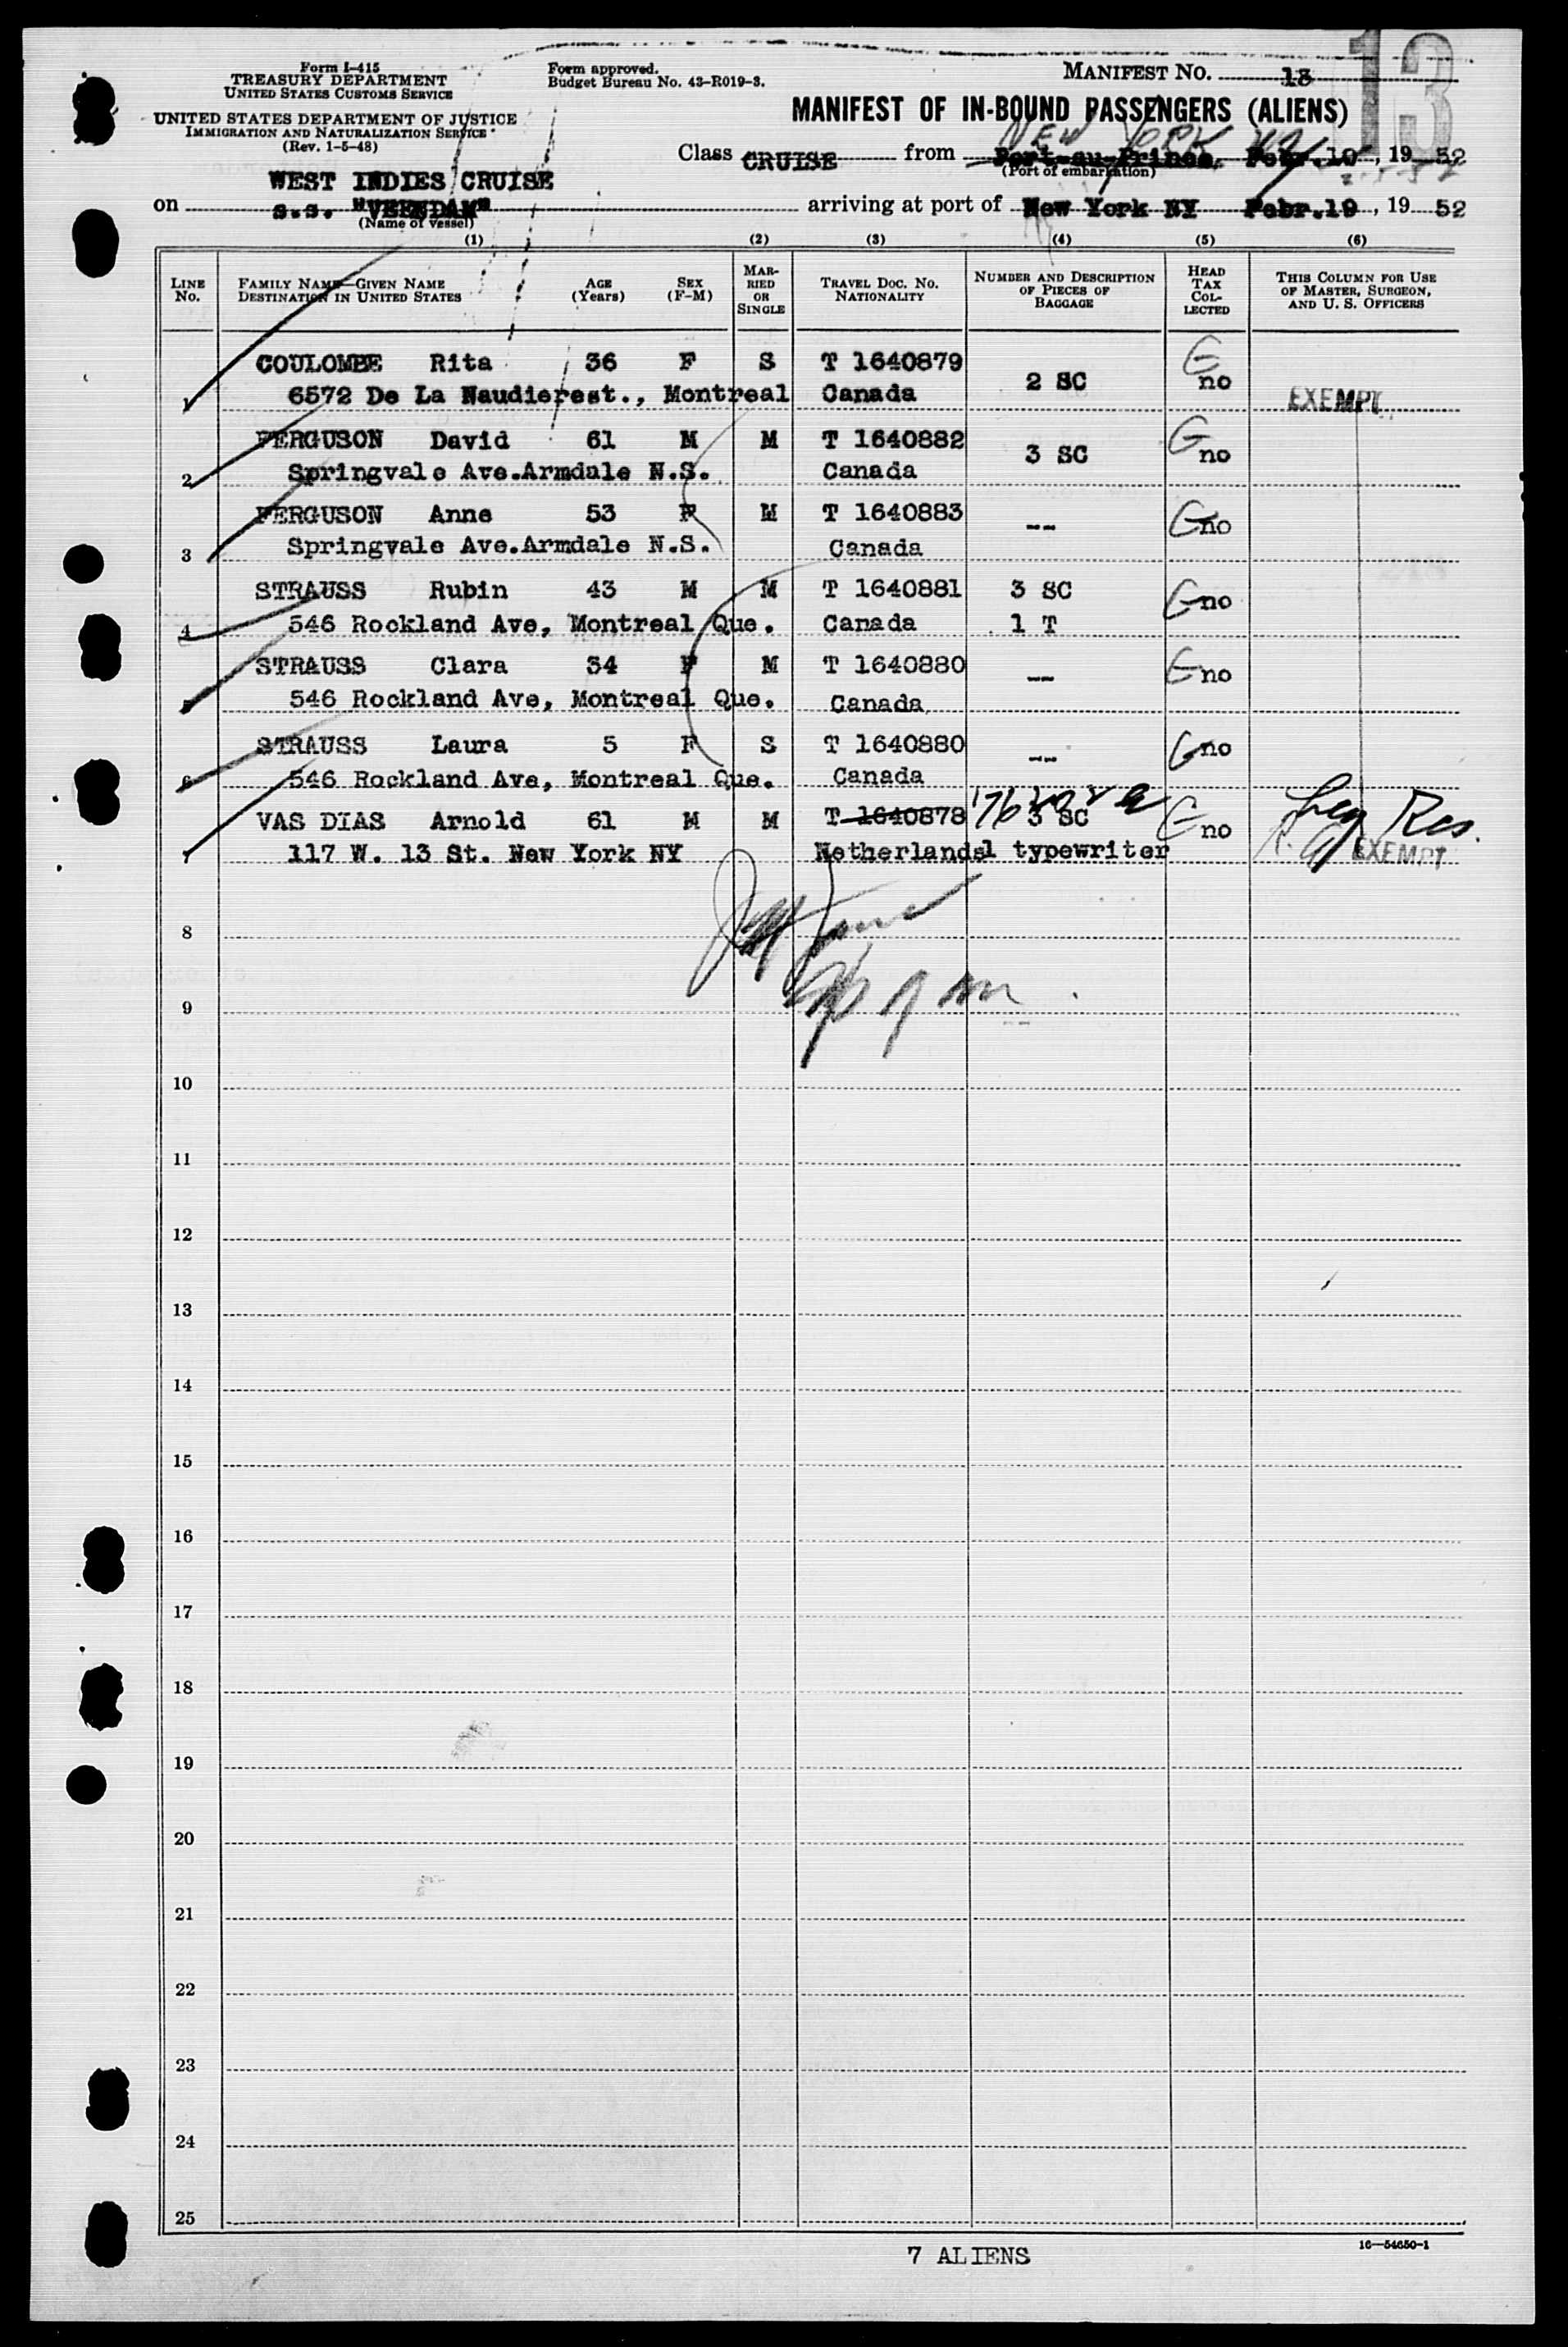 Form I-415
TREASURY DEPARTMENT
UNITED STATES CUSTOMS SERVICE
UNITED STATES DEPARTMENT OF JUSTICE
IMMIGRATION AND NATURALIZATION SERVICE
(Rev. 1-5-48)
Form approved.
Budget Bureau No. 43-R019-3.
MANIFEST NO. 13
13
MANIFEST OF IN-BOUND PASSENGERS (ALIENS)
NEW YORK NY
Class CRUISE from Port-au-Prince, Febr.10, 1952
(Port of embarkation)
WEST INDIES CRUISE
on s.s. "VEENDAM" arriving at port of New York NY Febr.19, 1952
(Name of vessel)
(1) (2) (3) (4) (5) (6)
LINE No. FAMILY NAME—GIVEN NAME DESTINATION IN UNITED STATES AGE (Years) SEX (F-M) MARRIED OR SINGLE TRAVEL DOC. NO. NATIONALITY NUMBER AND DESCRIPTION OF PIECES OF BAGGAGE HEAD TAX COLLECTED THIS COLUMN FOR USE OF MASTER, SURGEON, AND U. S. OFFICERS
COULOMBE Rita 36 F S T 1640879
1 6572 De La Naudierest., Montreal Canada 2 SC G no EXEMPT
FERGUSON David 61 M M T 1640882
2 Springvale Ave.Armdale N.S. Canada 3 SC G no
FERGUSON Anne 53 F M T 1640883
3 Springvale Ave.Armdale N.S. Canada -- G no
STRAUSS Rubin 43 M M T 1640881 3 SC G no
4 546 Rockland Ave, Montreal Que. Canada 1 T
STRAUSS Clara 34 F M T 1640880
5 546 Rockland Ave, Montreal Que. Canada -- G no
STRAUSS Laura 5 F S T 1640880
6 546 Rockland Ave, Montreal Que. Canada -- G no
VAS DIAS Arnold 61 M M T 1640878 3 SC G no Leg Res.
7 117 W. 13 St. New York NY Netherlands 1 typewriter EXEMPT
8
9
10
11
12
13
14
15
16
17
18
19
20
21
22
23
24
25
7 ALIENS
16—54650-1